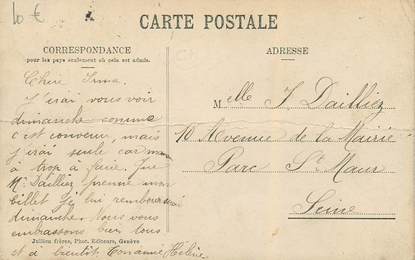 10 €
CARTE POSTALE
CORRESPONDANCE
pour les pays seulement où cela est admis.
ADRESSE
Chère Irma
J'irai vous voir
dimanche comme
c'est convenu, mais
j'irai seule car maman
a trop à faire. Que
Mr Dailliez prenne mon
billet je lui rembourserai
dimanche. Nous vous
embrassons bien tous
et à bientôt. Ton amie Hélène
Melle J. Dailliez
10 Avenue de la Mairie
Parc St Maur
Seine
Jullien frères, Phot. Editeurs, Genève